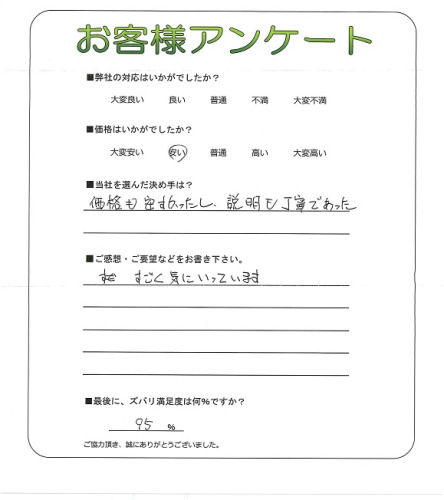 お客様アンケート
■弊社の対応はいかがでしたか？
大変良い 良い 普通 不満 大変不満
■価格はいかがでしたか？
大変安い 安い 普通 高い 大変高い
■当社を選んだ決め手は？
価格も安かったし、説明も丁寧であった
■ご感想・ご要望などをお書き下さい。
すごく気にいっています
■最後に、ズバリ満足度は何％ですか？
95 %
ご協力頂き、誠にありがとうございました。